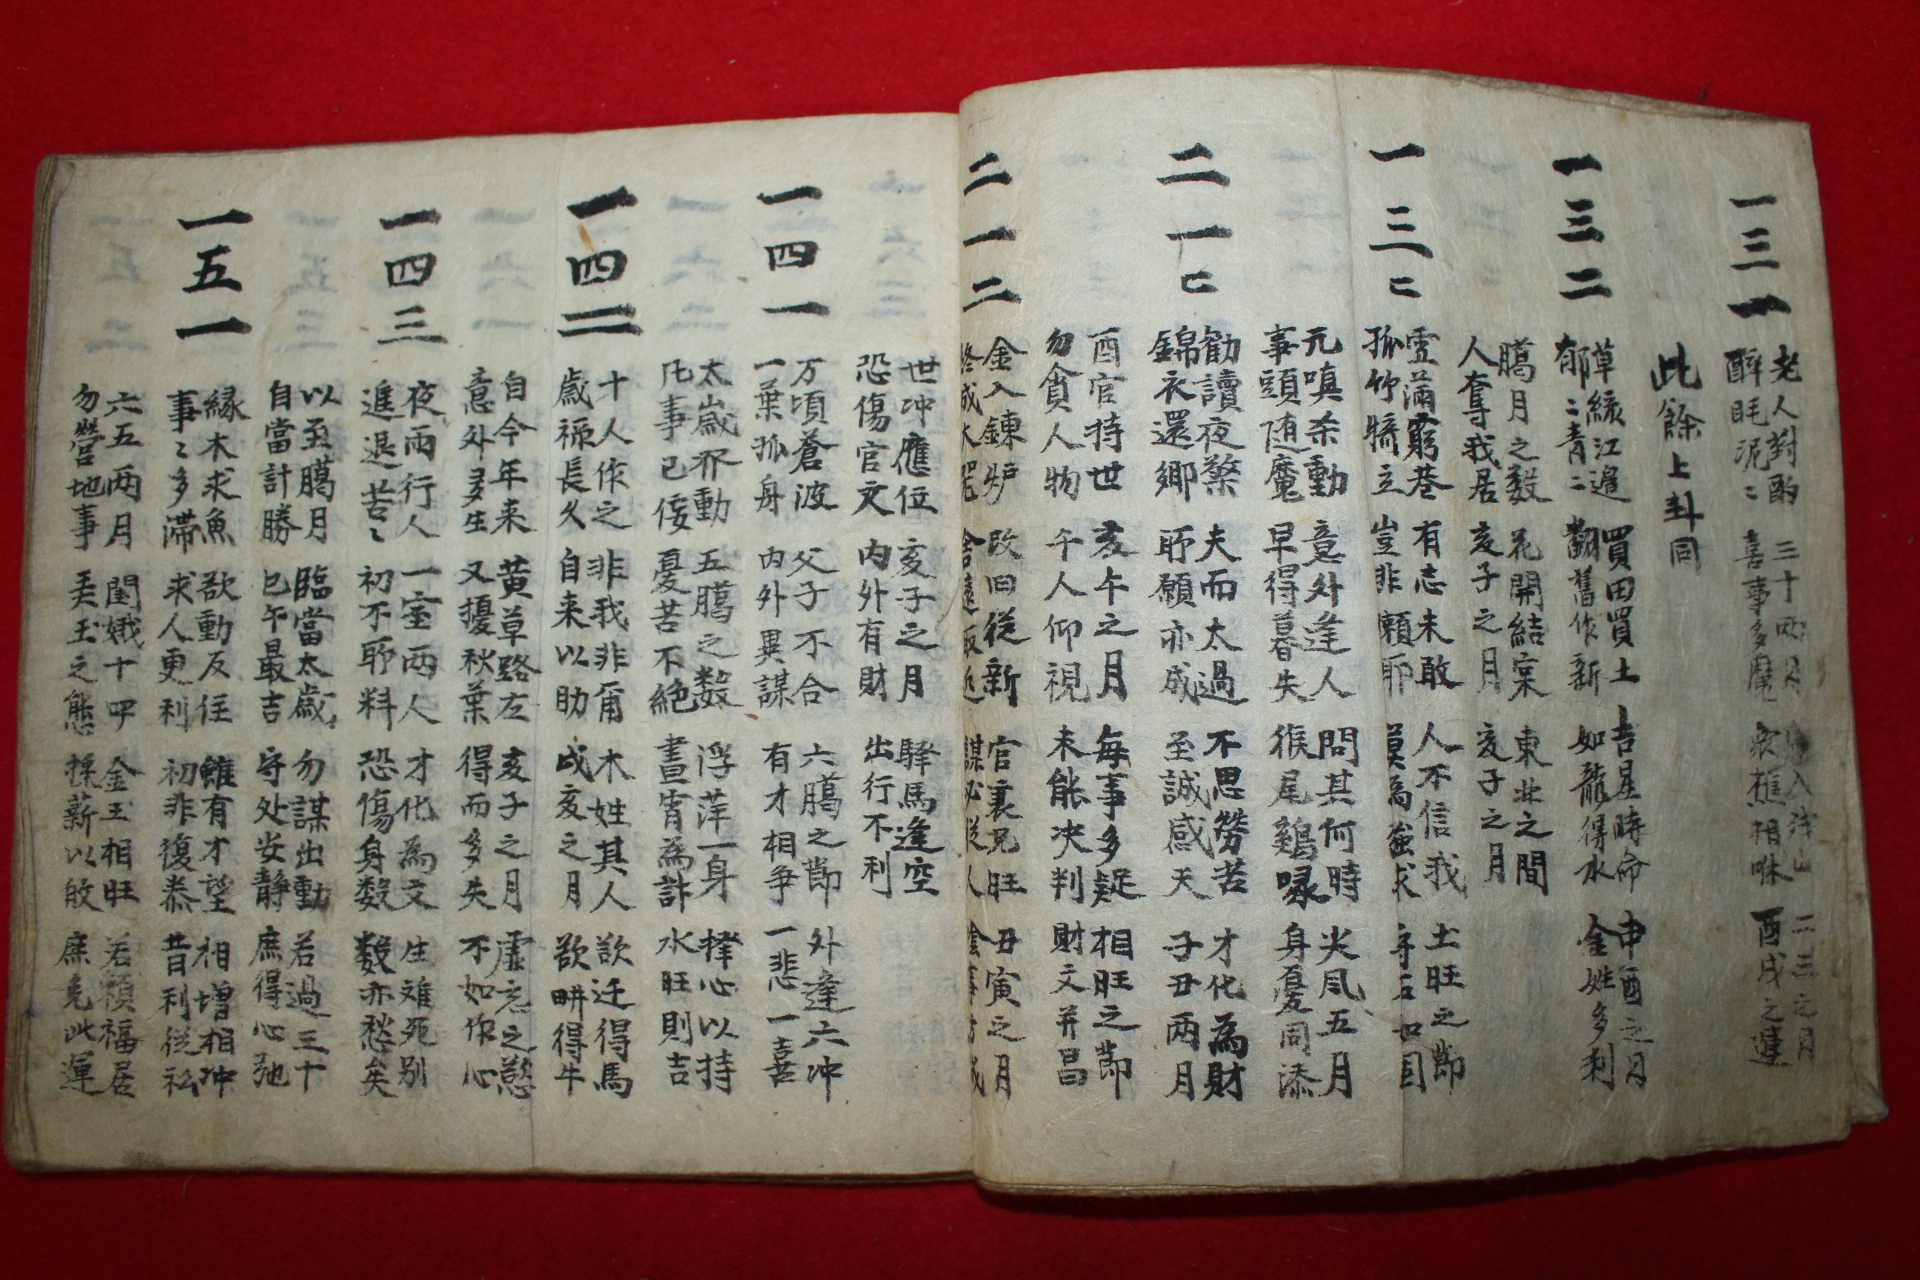 一三一
老人對酌 三十兩月 入 山 二三之月
醉眠泥〻 喜事多魔 漁樵相 酉戌之運
此餘上卦同
一三二
草緑江邊 買田買土 吉星時命 申酉之月
郁〻青〻 翻舊作新 如龍得水 金姓多利
臈月之数 花開結宲 東北之間
人奪我居 亥子之月 亥子之月
一三二
雪滿窮巷 有志未敢 人不信我 土旺之節
孤竹獨立 豈非願耶 莫為強求 守石如固
元嗔杀動 意外逢人 問其何時 火凨五月
事頭随魔 早得暮失 猴尾鷄喙 身憂同添
二一二
勸讀夜檠 夫而太過 不思勞苦 才化為財
錦衣還鄉 所願亦成 至誠感天 子丑兩月
酉官持世 亥午之月 每事多疑 相旺之節
勿貪人物 午人仰視 未能决判 財文并昌
二一二
金入鍊炉 改旧從新 官襄兄旺 丑寅之月
終成大器 舍遠取近 謀必從人 陰事方成
世冲應位 亥子之月 驛馬逢空
恐傷官文 内外有財 出行不利
一四一
万頃蒼波 父子不合 六臈之節 外逢六冲
一葉孤舟 内外異謀 有才相争 一悲一喜
太歲夘動 五臈之数 浮萍一身 擇心以持
凡事已俀 憂苦不絶 晝宵為詐 水旺則吉
一四二
十人作之 非我非甭 木姓其人 欲迁得馬
歲福長久 自来以助 戌亥之月 欲畊得牛
自今年来 黄草路左 亥子之月 虛忘之慾
意外多生 又擾秋葉 得而多失 不如作心
一四三
夜雨行人 一室两人 才化為文 生难死别
進退苦〻 初不耶料 恐傷身数 数亦愁矣
以至臈月 臨當太歲 勿謀出動 若過三十
自當計勝 巳午最吉 守处安静 庶得心弛
一五一
緣木求魚 欲動反住 雖有才望 相增相冲
事〻多滞 求人更利 初非復泰 昔利從私
六五两月 閨娥十四 金玉相旺 若願福居
勿營地事 美玉之態 採薪以敀 庶免此運